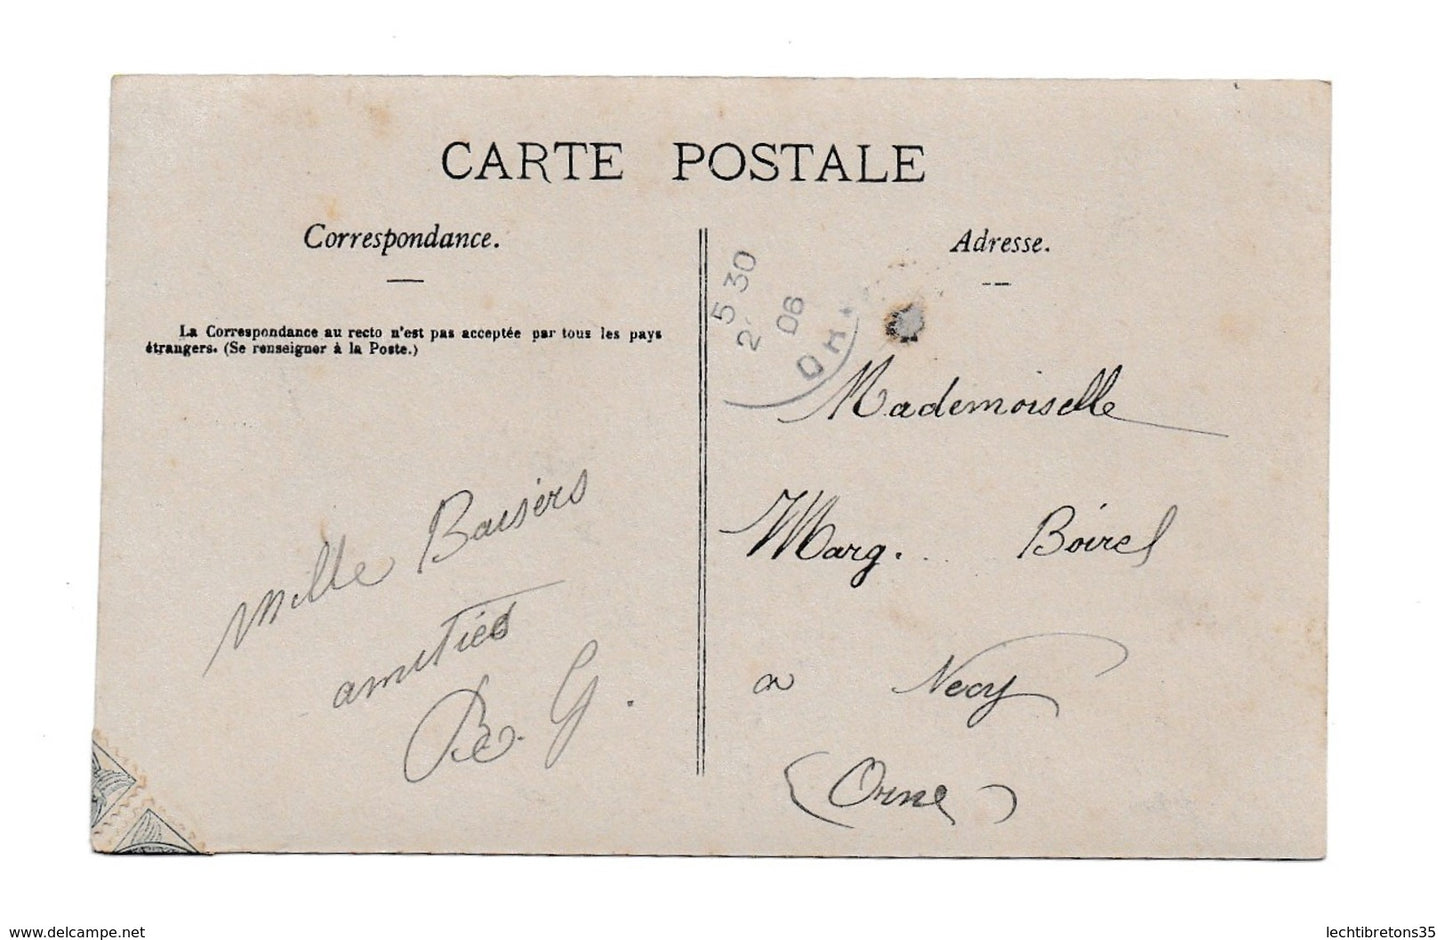 CARTE POSTALE
Correspondance.
La Correspondance au recto n'est pas acceptée par tous les pays
étrangers. (Se renseigner à la Poste.)
mille Baisers
amitiés
B. G.
Adresse.
5 30
2
06
Mademoiselle
Marg. Boirel
a Necy
(Orne)
www.delcampe.net
lechtibretons35